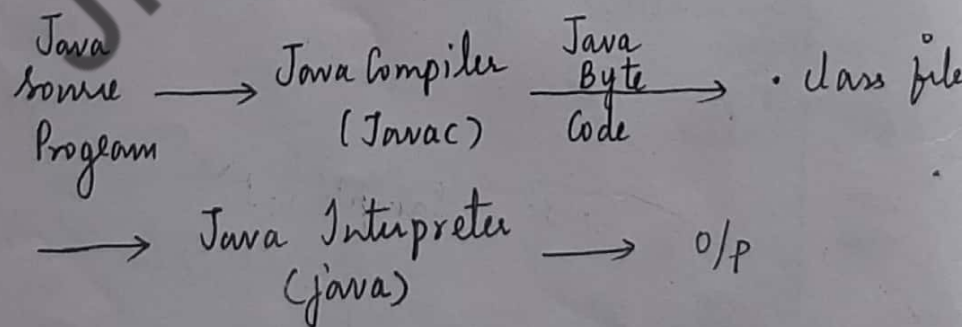 Java Source Program → Java Compiler (Javac) → Java Byte Code → .class file
→ Java Interpreter (java) → O/P